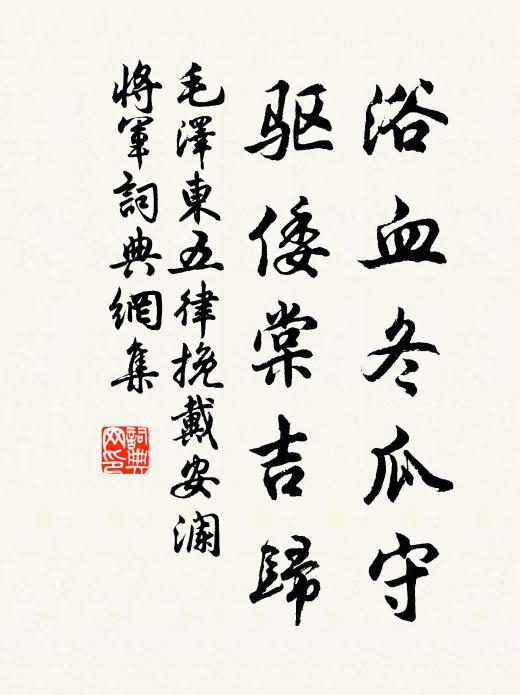 浴血冬瓜守
驱倭棠吉歸
毛澤東五律挽戴安澜
將軍詞典網集
詞典网印